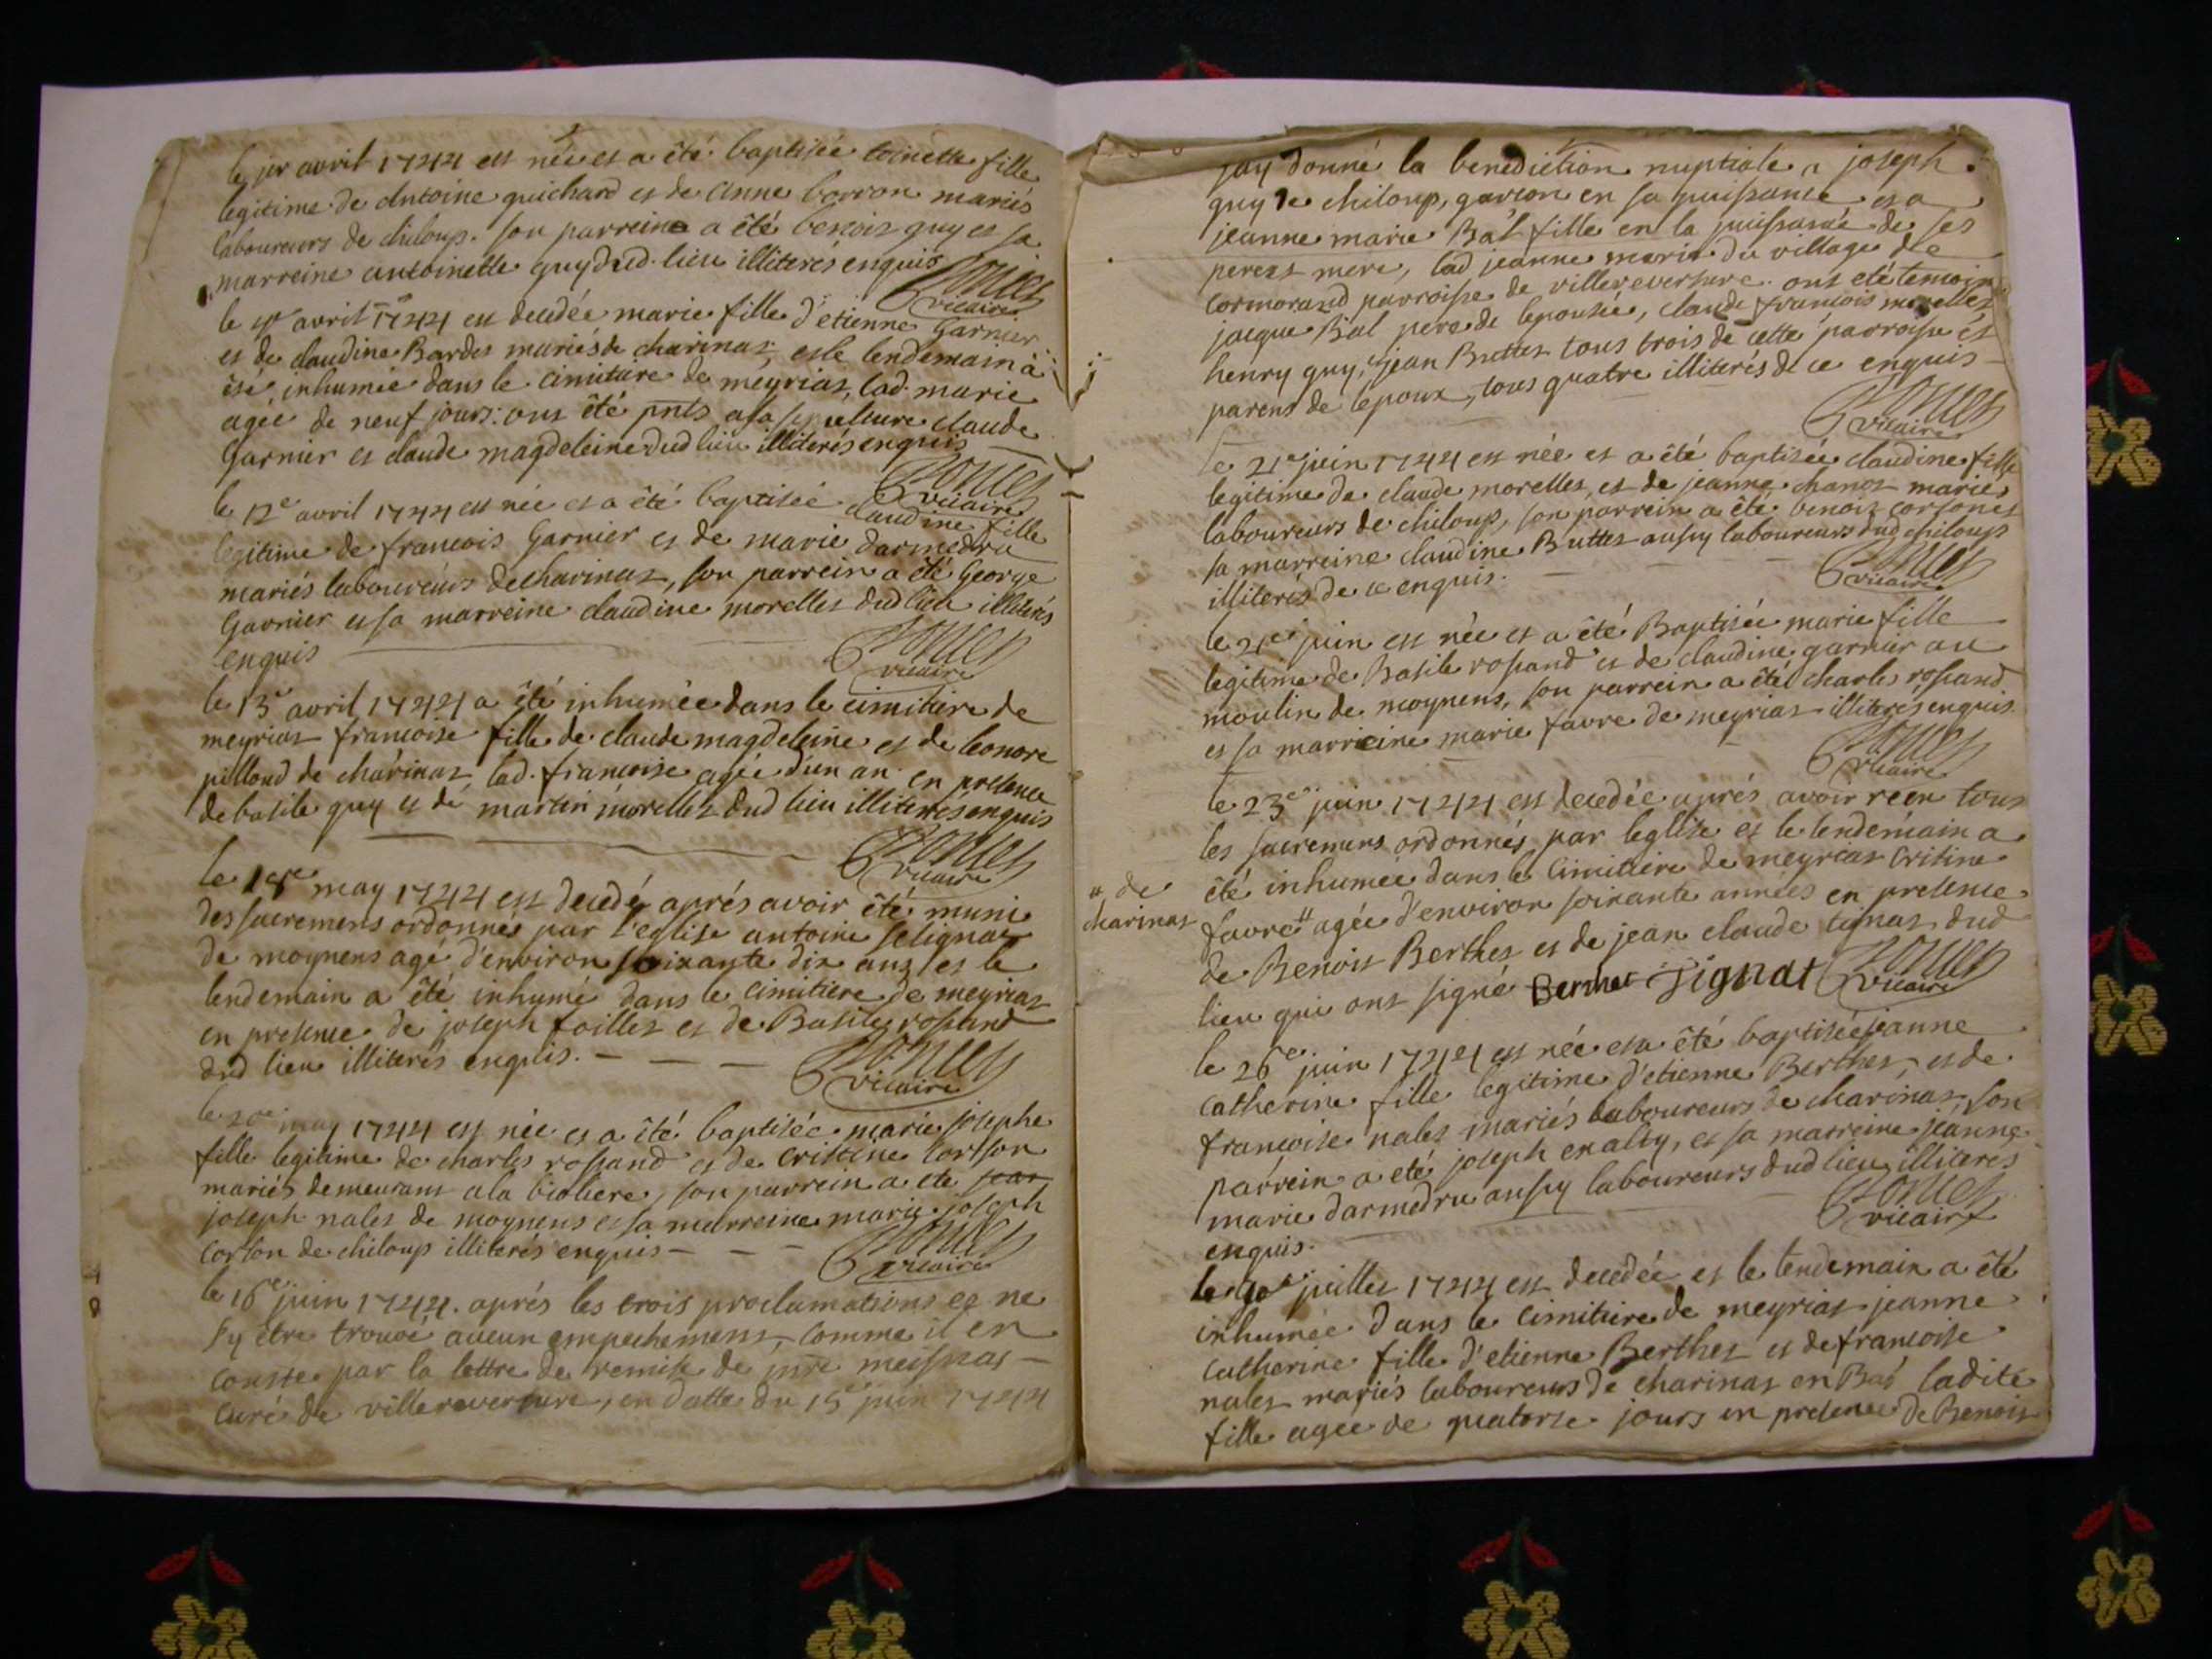 le jer avril 1744 est née et a été baptisée toinette fille
legitime de Antoine guichard et de Anne borron mariés
laboureurs de chiloup. son parreine a été benoit guy et sa
marreine antoinette guy dud. lieu illiterés enquis
vicaire
le avril 1744 est decedée marie fille d'etienne Garnier
et de claudine Bardet mariés de charinaz, et le lendemain à
été inhumée dans le cimitiere de meyriat, lad. marie
agée de neuf jours: ont été pnts a la sepulture claude
Garnier et claude magdeleine dud lieu illiterés enquis
vicaire
le 12e avril 1744 est née et a été baptisée claudine fille
legitime de francois Garnier et de marie darmedru
mariés laboureurs de charinaz, son parrein a été George
Garnier et sa marreine claudine morellet dud lieu illiterés
enquis
vicaire
le 13e avril 1744 a été inhumée dans le cimitiere de
meyriat francoise fille de claude magdeleine et de leonore
pilloud de charinaz lad. francoise agée d'un an en presence
de basile guy et de martin morellet dud lieu illiterés enquis
vicaire
le may 1744 est decedé aprés avoir été muni
des sacremens ordonnés par l'eglise antoine selignat
de moynens agé d'environ soixante dix ans et le
lendemain a été inhumé dans le cimitiere de meyriat
en presence de joseph foillet et de Basile rossand
dud lieu illiterés enquis.
vicaire
le 20e may 1744 est née et a été baptisée marie josephe
fille legitime de charles rossand et de cristine corson
mariés demeurans a la bioliere, son parrein a ete jean
joseph nalet de moynens et sa marreine marie joseph
corson de chiloup illiterés enquis
vicaire
le 16e juin 1744. aprés les trois proclamations et ne
s'y être trouvé aucun empechemens, comme il en
conste par la lettre de remise de mre meisnat
curé de villereversure, en datte du 15e juin 1744
jay donné la benediction nuptiale a joseph
guy de chiloup, garcon en sa puissance et a
jeanne marie Bal fille en la puissance de ses
pere et mere, lad jeanne marie du village de
cormorand parroisse de villereversure. ont eté temoins
jacque Bal pere de l'epousée, claude francois morellet
henry guy, jean Buttet tous trois de cette parroisse et
parens de l'epoux, tous quatre illiterés de ce enquis
vicaire
le 21e juin 1744 est née et a été baptisée claudine fille
legitime de claude morellet, et de jeanne chanot mariés
laboureurs de chiloup, son parrein a été benoit corson et
sa marreine claudine Buttet aussy laboureurs dud chiloup
illiterés de ce enquis.
vicaire
le 21e juin est née et a été Baptisée marie fille
legitime de Basile rossand et de claudine garnier au
moulin de moynens, son parrein a été charles rossand
et sa marreine marie favre de meyriat illiterés enquis.
vicaire
le 23e juin 1744 est decedée aprés avoir recu tous
les sacremens ordonnés par l'eglise et le lendemain a
été inhumée dans le cimitiere de meyriat cristine
# de
charinaz
favre # agée d'environ soixante années en presence
de Benoit Berthet et de jean claude tignat dud
lieu qui ont signé Berthet Tignat
vicaire
le 26e juin 1744 est née et a été baptisée jeanne
catherine fille legitime d'etienne Berthet, et de
francoise nalet mariés laboureurs de charinaz, son
parrein a eté joseph enalby, et sa marreine jeanne
marie darmedru aussy laboureurs dud lieu illiterés
enquis.
vicaire
le 10e juillet 1744 est decedée et le lendemain a été
inhumée dans le cimitiere de meyriat jeanne
catherine fille d'etienne Berthet et de francoise
nalet mariés laboureurs de charinaz en Bas ladite
fille agée de quatorse jours en presence de Benoit